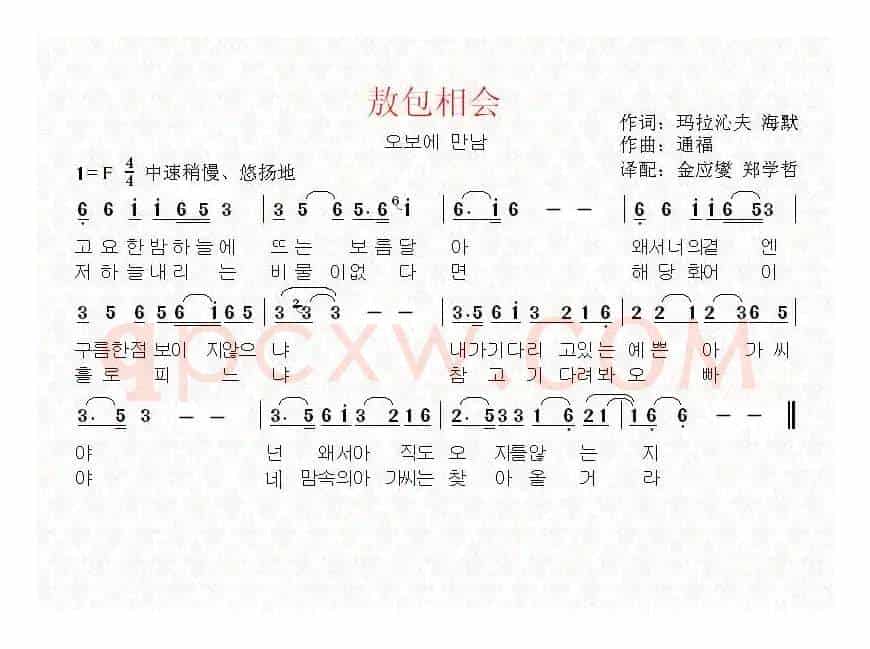 敖包相会
오보에 만남
作词：玛拉沁夫 海默
作曲：通福
译配：金应燮 郑学哲
1=F 4/4 中速稍慢、悠扬地
6 6 i i 6 5 3 | 3 5 6 5. 6 6 i | 6. i 6 － － | 6 6 i i i 6 5 3 |
고 요 한 밤 하 늘 에 뜨 는 보 름 달 아 왜 서 너 의 곁 엔
저 하 늘 내 리 는 비 물 이 없 다 면 해 당 화 어 이
3 5 6 5 6 i 6 5 | 3 2 3 3 － － | 3. 5 6 i 3 2 1 6 | 2 2 1 2 3 6 5 |
구름한점 보이 지않으 냐 내가기다리 고있는 예쁜 아 가 씨
홀 로 피 느 냐 참 고 기 다려봐 오 빠
qpcxw.com
3. 5 3 － － | 3. 5 6 i 3 2 1 6 | 2. 5 3 3 1 6 2 1 | 1 6 6 － － ‖
야 넌 왜서아 직도 오 지를않 는 지
야 네 맘속의아 가씨는 찾 아 올 거 라